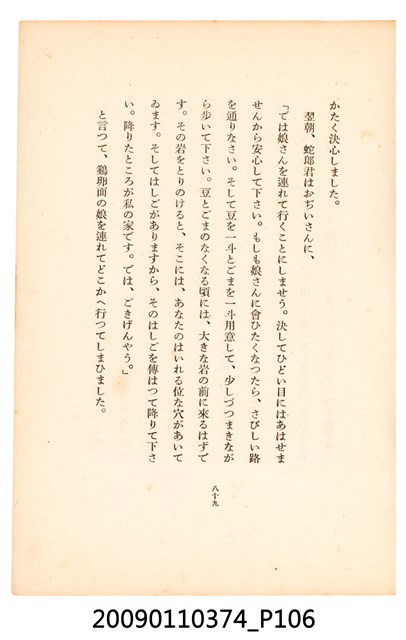 かたく決心しました。
翌朝、蛇郎君はおぢいさんに、
「では娘さんを連れて行くことにしませう。決してひどい目にはあはせま
せんから安心して下さい。もしも娘さんに會ひたくなつたら、さびしい路
を通りなさい。そして豆を一斗とごまを一斗用意して、少しづつまきなが
ら歩いて下さい。豆とごまのなくなる頃には、大きな岩の前に來るはずで
す。その岩をとりのけると、そこには、あなたのはいれる位な穴があいて
ゐます。そしてはしごがありますから、そのはしごを傳はつて降りて下さ
い。降りたところが私の家です。では、ごきげんやう。」
と言つて、鷄卵面の娘を連れてどこかへ行つてしまひました。
八十九
20090110374_P106